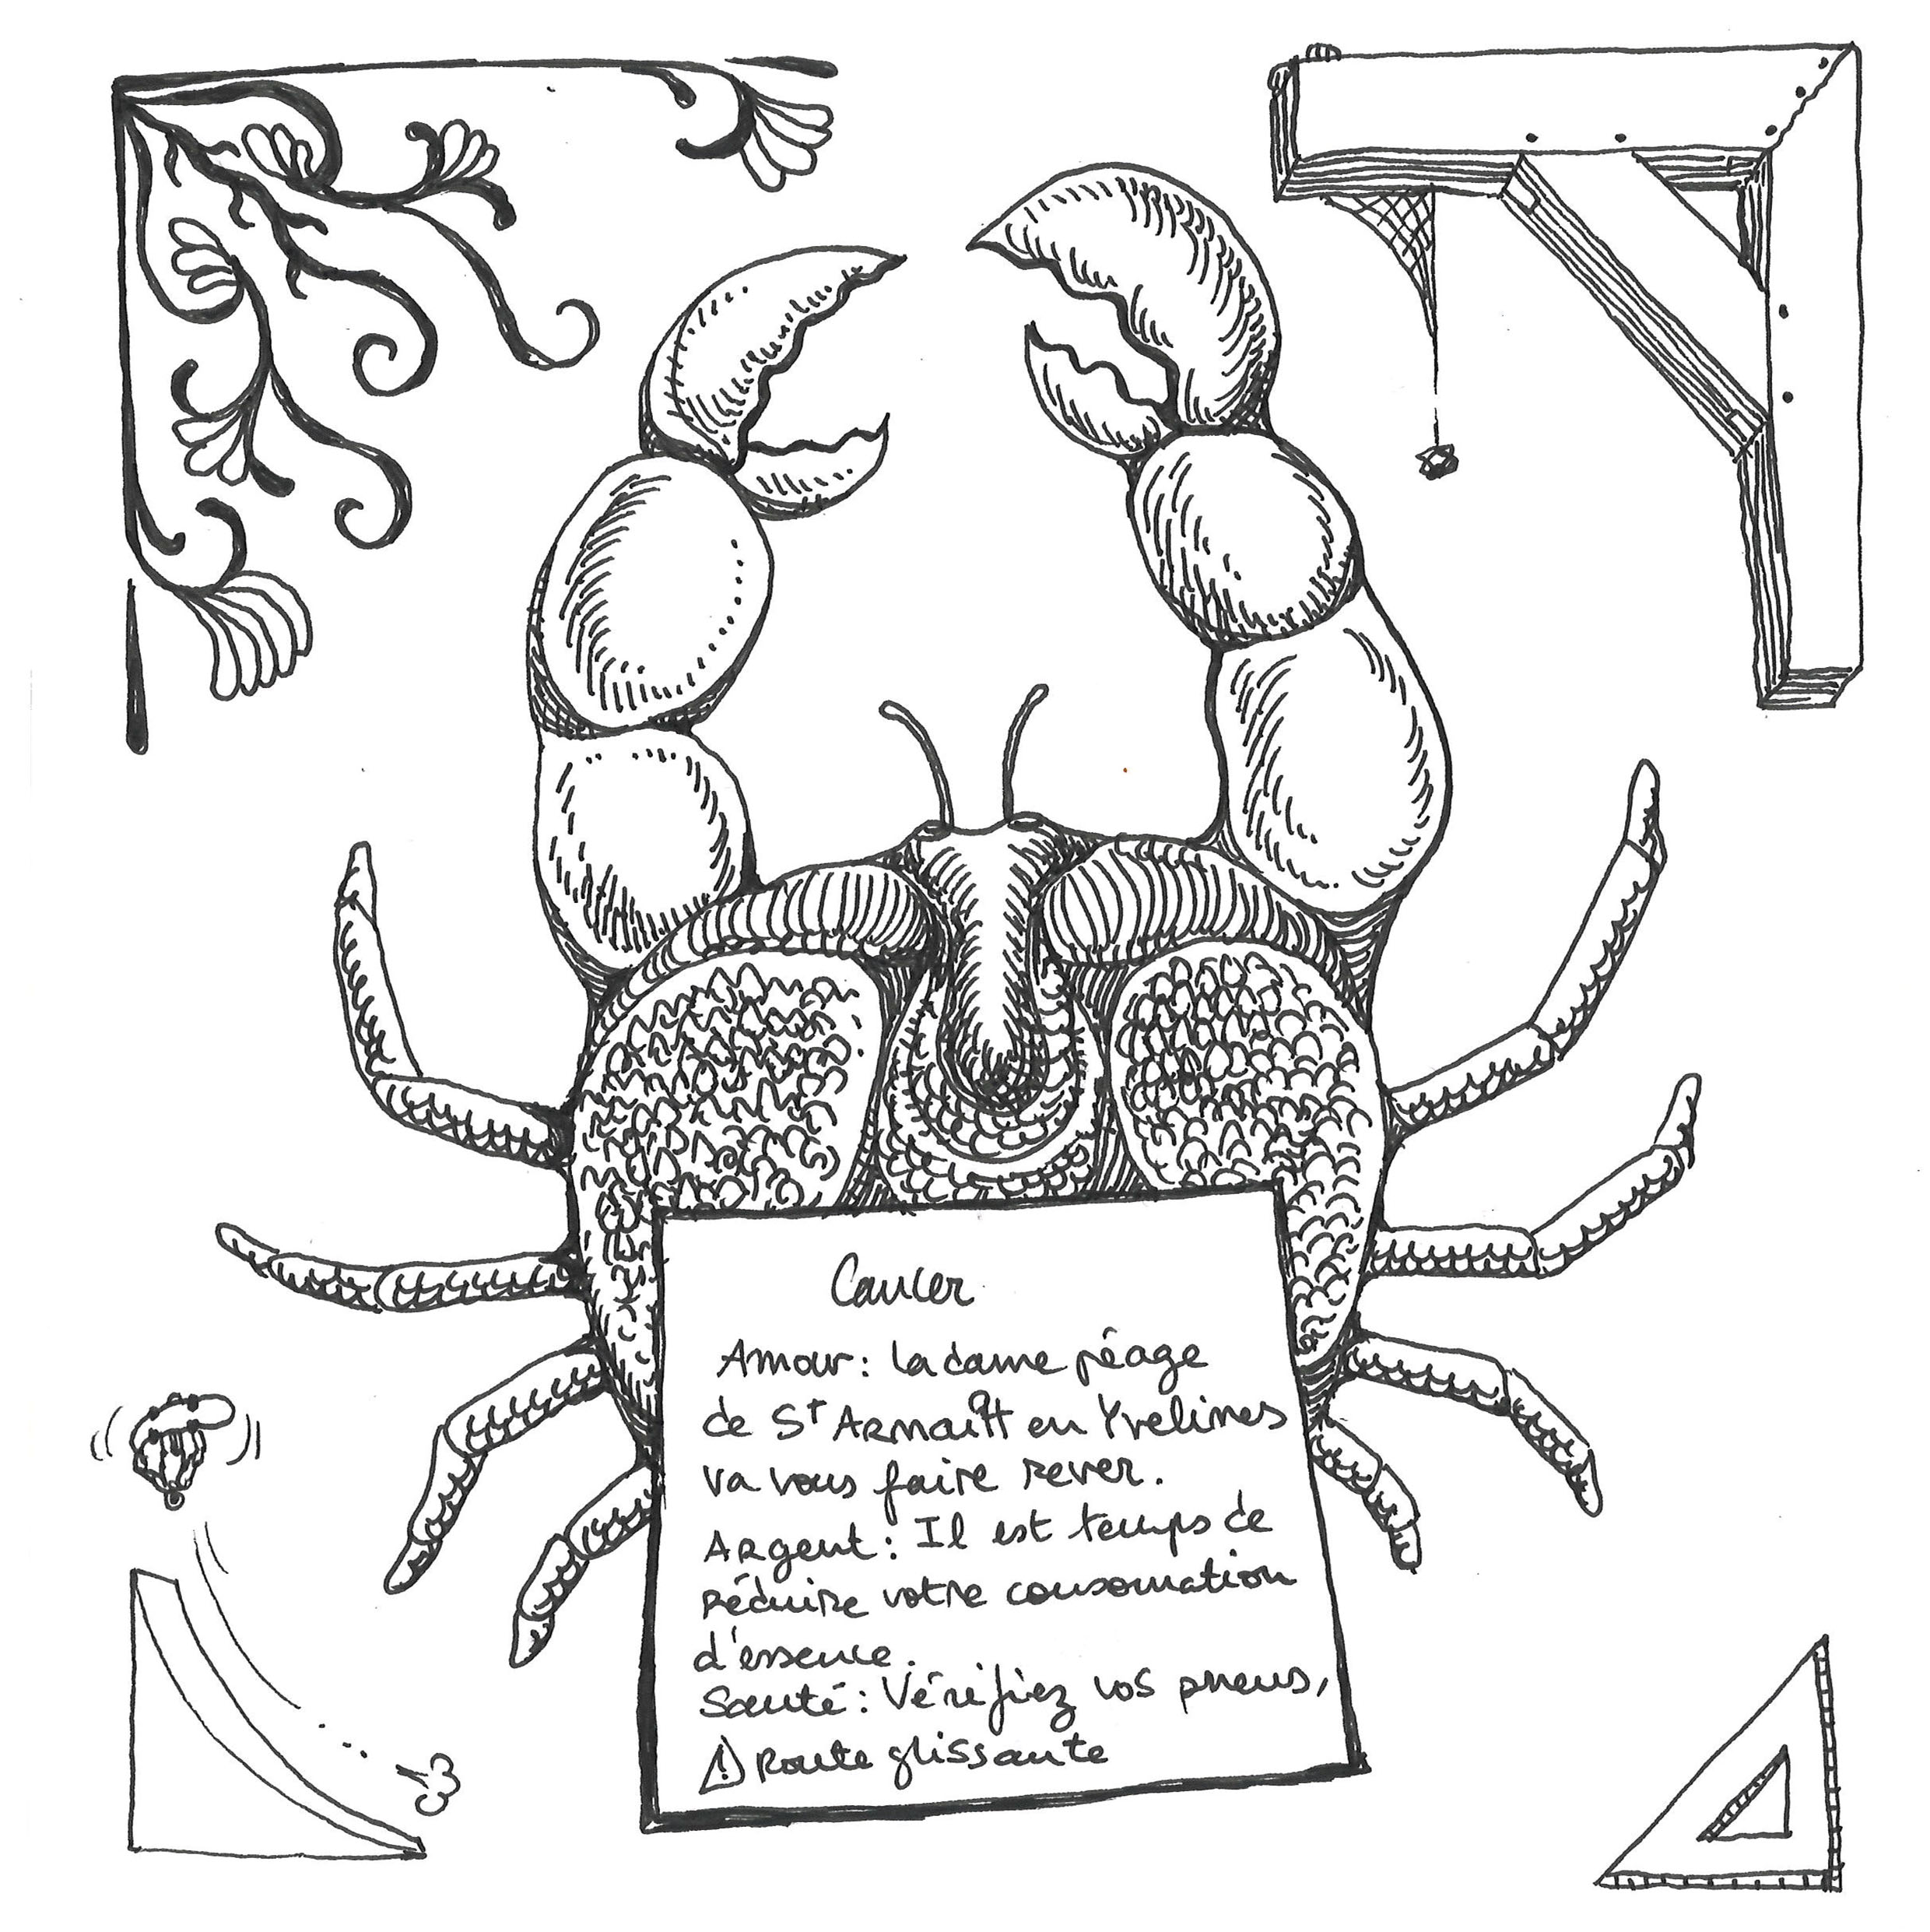 Cancer
Amour: la dame péage
de St Arnoult en Yvelines
va vous faire rever.
Argent: Il est temps de
réduire votre consommation
d'essence.
Santé: Vérifiez vos pneus,
⚠ Route glissante